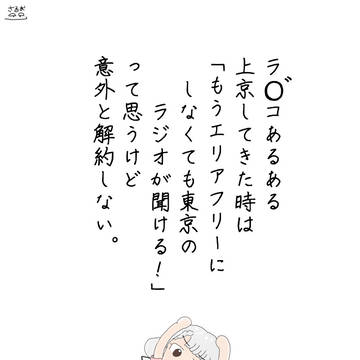 さるお
ラ゛〇コあるある
上京してきた時は
「もうエリアフリーに
しなくても東京の
ラジオが聞ける！」
って思うけど
意外と解約しない。